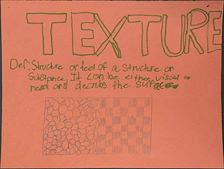 TEXTURE
Def: Structure or feel of a structure or
Substance. It can be either visual or
read and decribs the surface